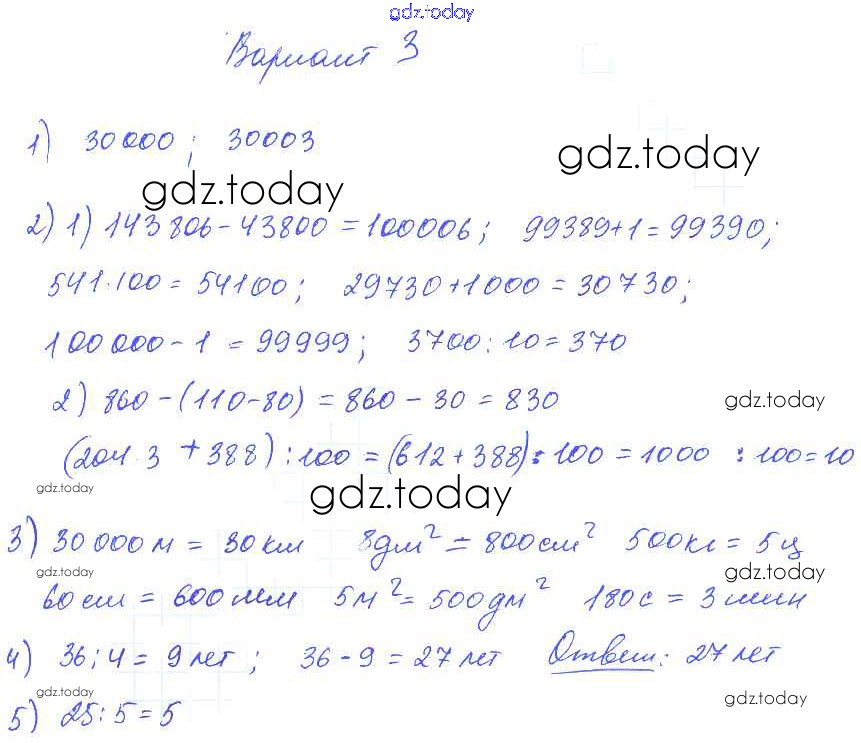 gdz.today
Вариант 3
1) 30000; 30003
gdz.today
gdz.today
2) 1) 143806-43800=100006; 99389+1=99390;
541·100=54100; 29730+1000=30730;
100000-1=99999; 3700:10=370
2) 860-(110-80)=860-30=830
gdz.today
(204·3+388):100=(612+388):100=1000:100=10
gdz.today
gdz.today
3) 30000м=30км 8дм²=800см² 500кг=5ц
gdz.today
gdz.today
60см=600мм 5м²=500дм² 180с=3мин
4) 36:4=9лет; 36-9=27лет Ответ: 27лет
gdz.today
gdz.today
5) 25:5=5